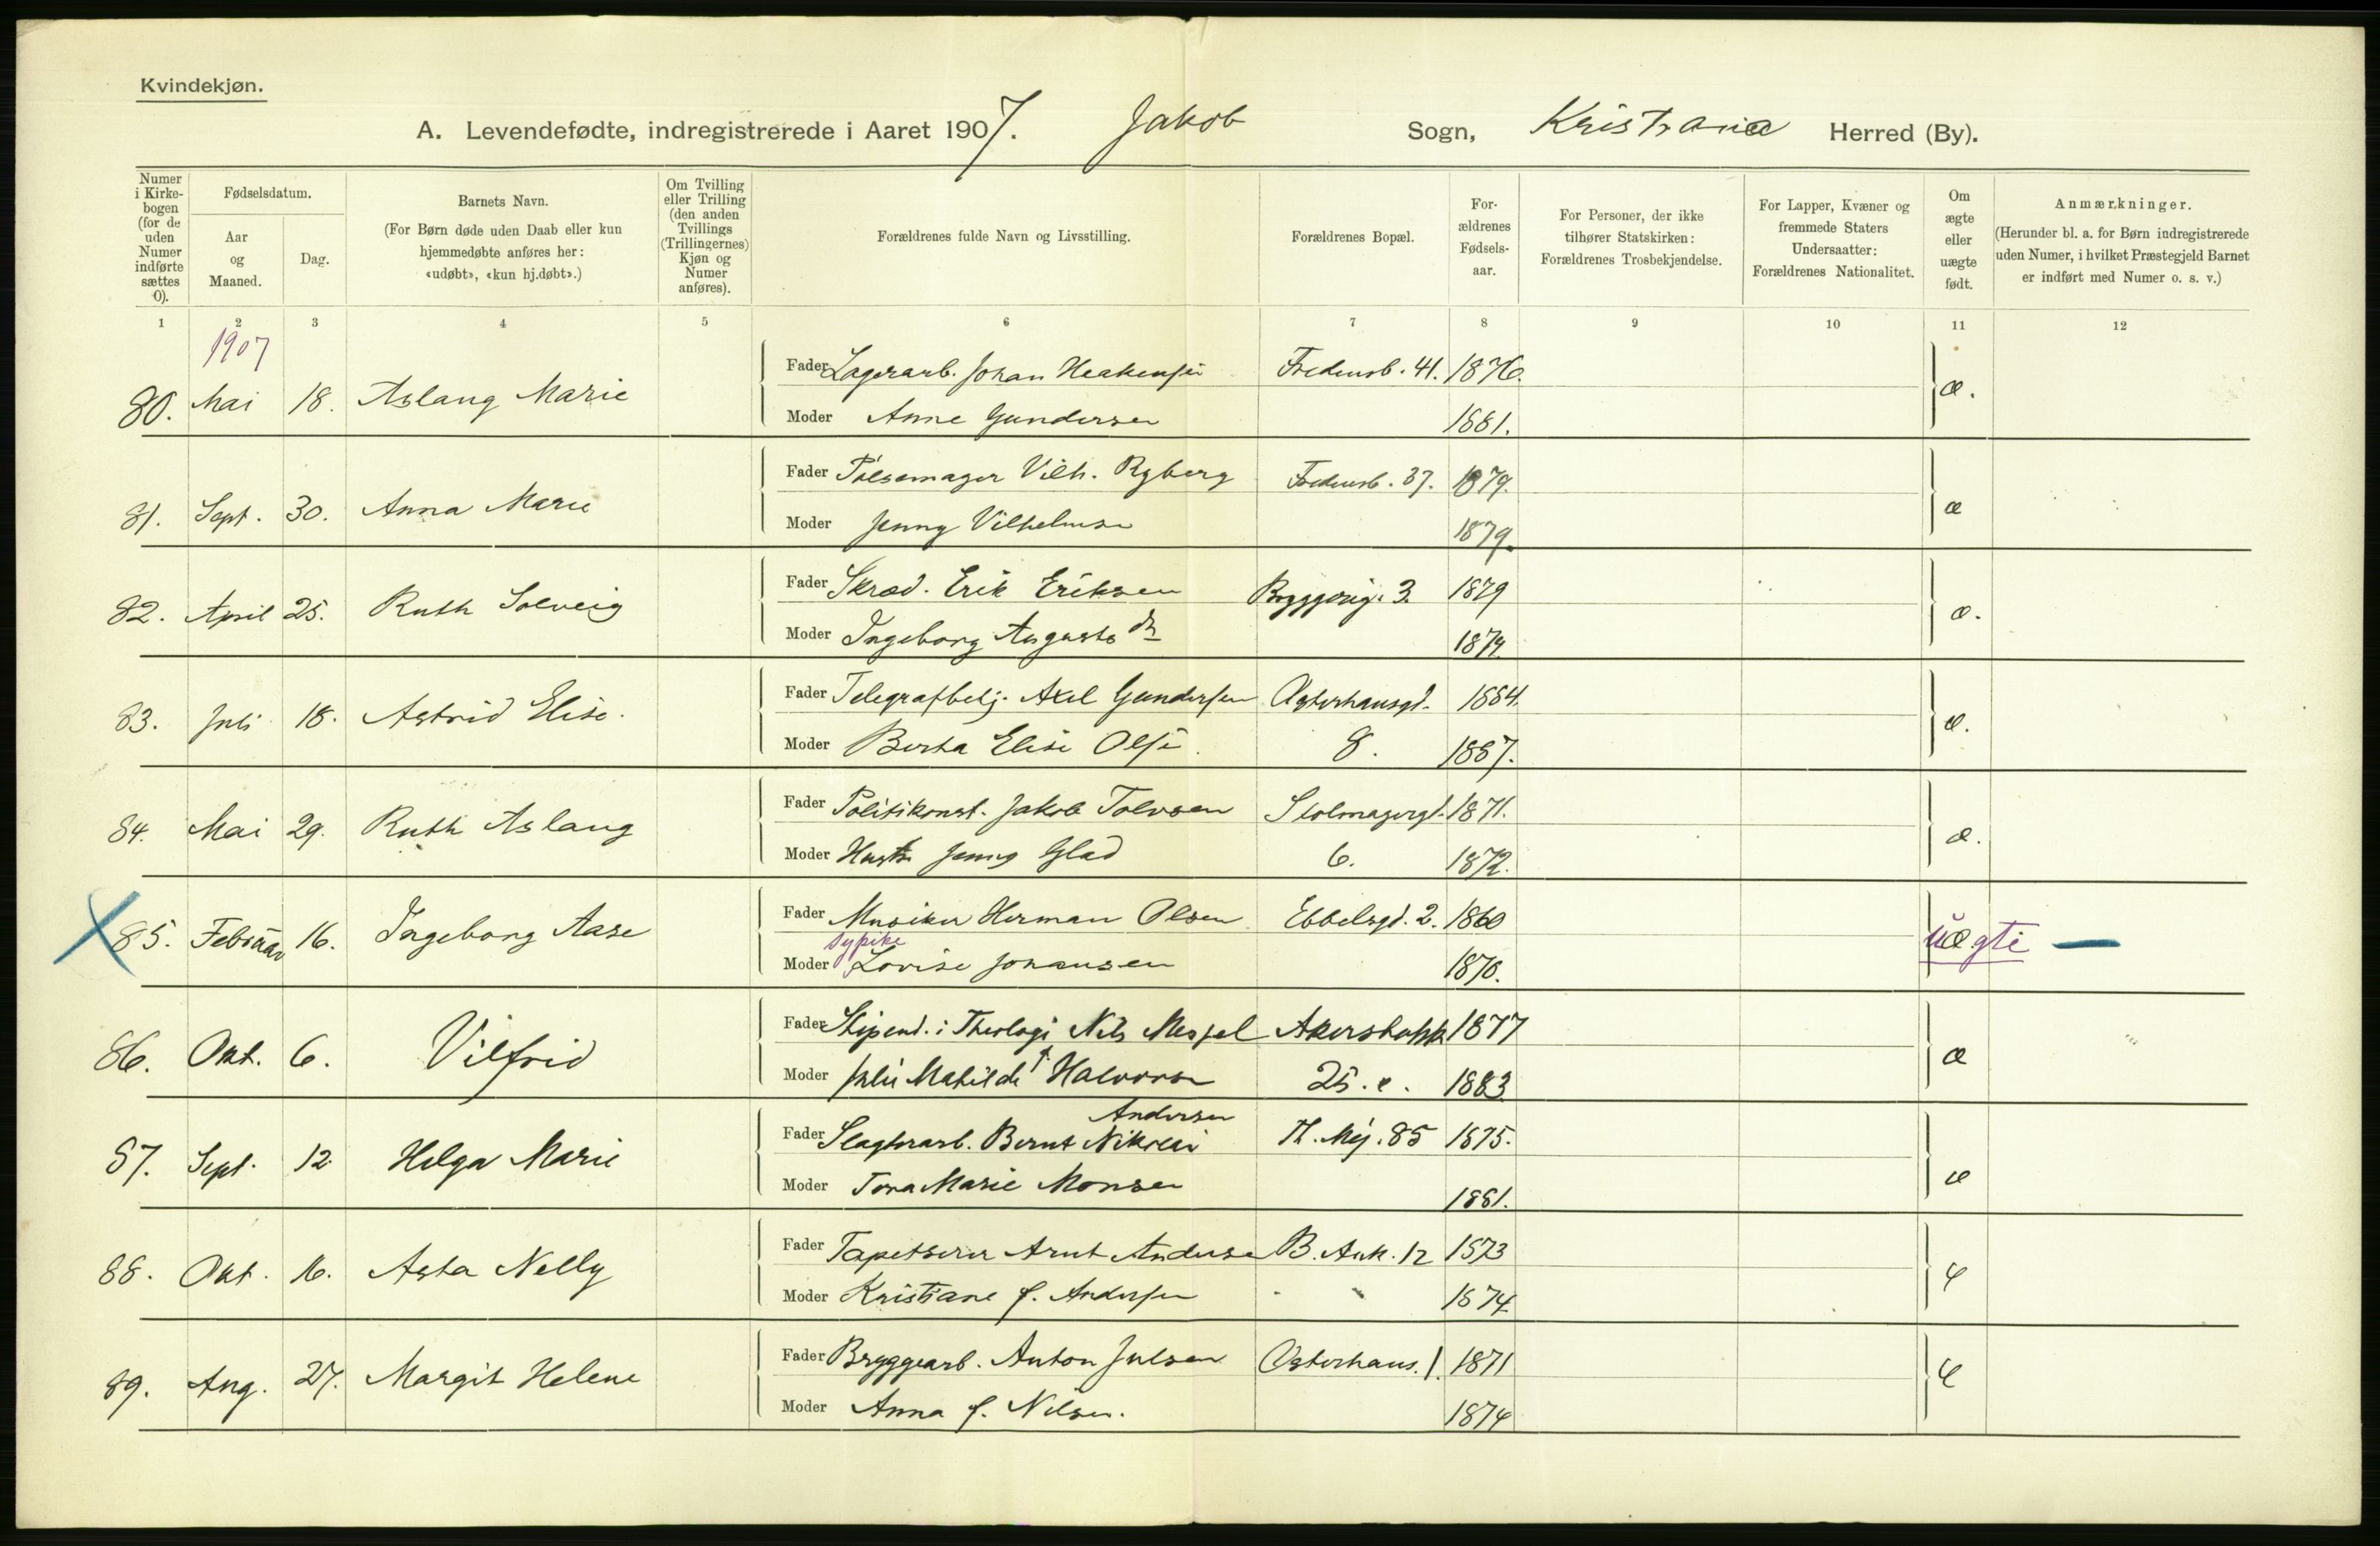 Kvindekjøn.
A. Levendefødte, indregistrerede i Aaret 1907. Jakob Sogn, Kristiania Herred (By).
Numer i Kirkebogen (for de uden Numer indførte sættes 0).
Fødselsdatum.
Aar og Maaned.
Dag.
Barnets Navn.
(For Børn døde uden Daab eller kun hjemmedøbte anføres her: «udøbt», «kun hj.døbt».)
Om Tvilling eller Trilling (den anden Tvillings (Trillingernes) Kjøn og Numer anføres).
Forældrenes fulde Navn og Livsstilling.
Forældrenes Bopæl.
Forældrenes Fødselsaar.
For Personer, der ikke tilhører Statskirken: Forældrenes Trosbekjendelse.
For Lapper, Kvæner og fremmede Staters Undersaatter: Forældrenes Nationalitet.
Om ægte eller uægte født.
Anmærkninger.
(Herunder bl. a. for Børn indregistrerede uden Numer, i hvilket Præstegjeld Barnet er indført med Numer o. s. v.)
1 2 3 4 5 6 7 8 9 10 11 12
1907
80. Mai 18. Aslaug Marie Fader Lagerarb. Johan Haakensen Fredensb. 41. 1876. æ.
Moder Anne Gundersen 1881.
81. Sept. 30. Anna Marie Fader Pølsemager Vilh. Ryberg Fredensb. 37. 1879. æ
Moder Jenny Vilhelmsen 1879.
82. April 25. Ruth Solveig Fader Skræd. Erik Eriksen Byggving. 3. 1879 æ.
Moder Ingeborg Augusta 1879.
83. Juli 18. Astrid Elise. Fader Telegrafbetj. Axel Gundersen Østerhausgd. 1884. æ.
Moder Berta Elise Olsen 8. 1887.
84. Mai 29. Ruth Aslaug Fader Politikonst. Jakob Tolvsen Stolmagergd. 1871. æ.
Moder Hustru Jenny Glad 6. 1872.
85. Februar 16. Ingeborg Aase Fader Musiker Herman Olsen Ebbelsgd. 2. 1860 uægte —
sypike
Moder Lovise Johansen 1870.
86. Okt. 6. Vilfrid Fader Stipend. i Theologi Nils Messel Akersbakk 1877 æ
Moder Julie Mathilde f. Halvorsen 25. e. 1883
Andersen
87. Sept. 12. Helga Marie Fader Slagterarb. Bernt Nikolai Th. Mej. 85 1875. æ
Moder Tora Marie Monsen 1881.
88. Okt. 16. Asta Nelly Fader Tapetserer Arnt Andersen B. Ank. 12 1873 æ
Moder Kristiane f. Andersen 1874
89. Aug. 27. Margit Helene Fader Bryggearb. Anton Julsen Østerhaus. 1. 1871 æ
Moder Anna f. Nilsen. 1874